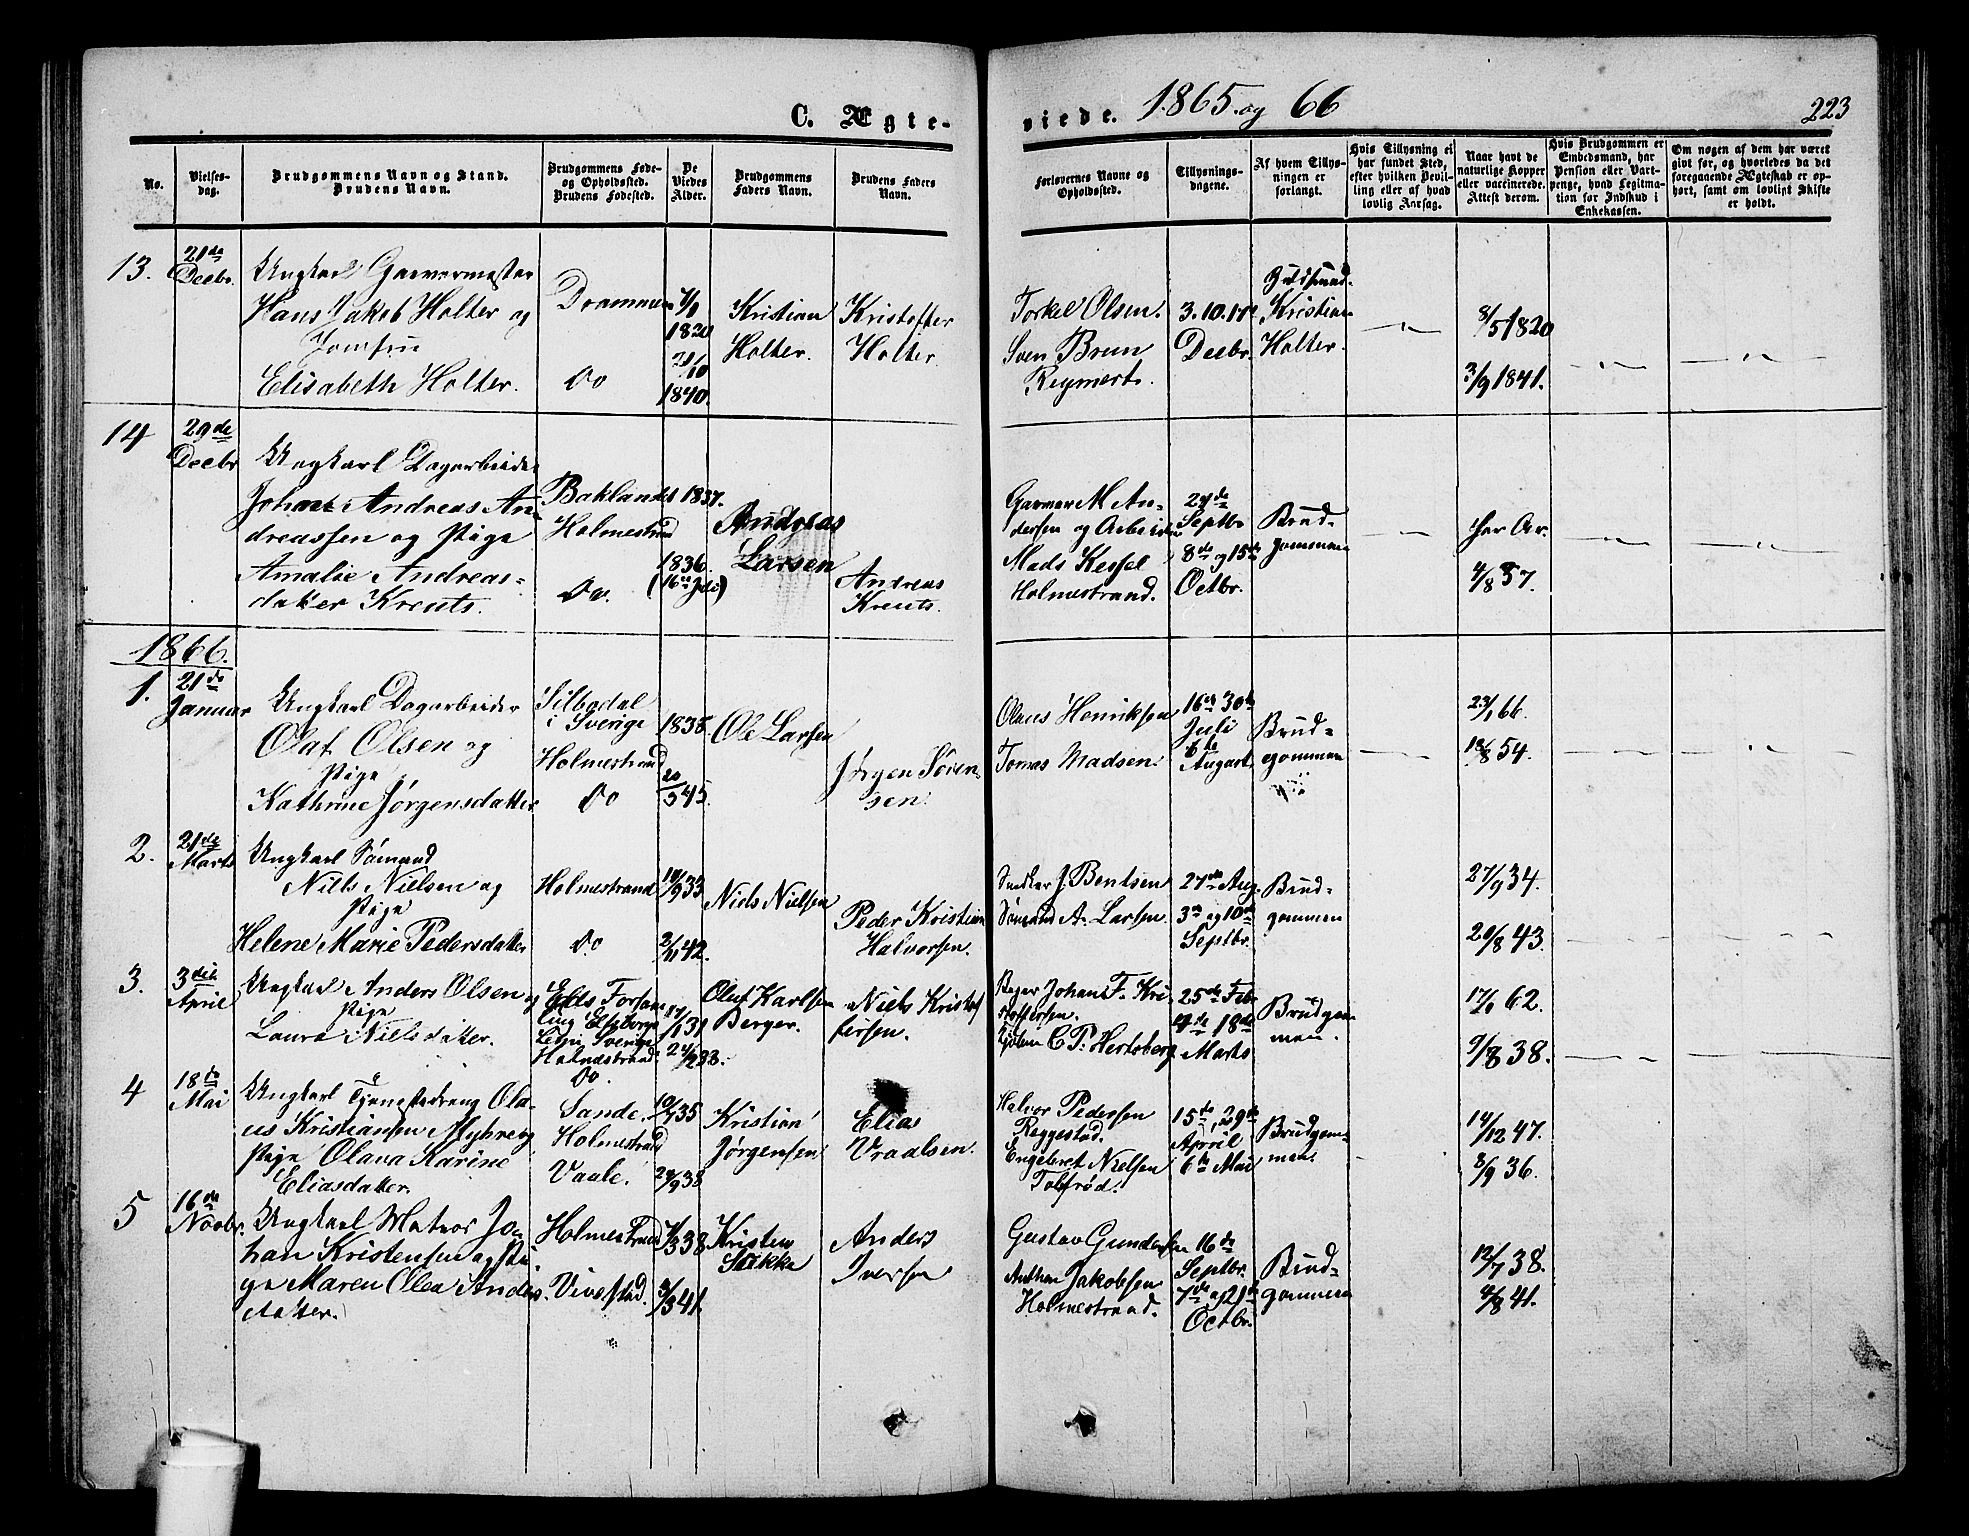 C. Ægteviede. 1865 og 66
223
No.
Vielsesdag.
Brudgommens Navn og Stand. Brudens Navn.
Brudgommens Føde- og Opholdssted. Brudens Fødested.
De Viedes Alder.
Brudgommens Faders Navn.
Brudens Faders Navn.
Forlovernes Navne og Opholdssted.
Tillysningsdagene.
Af hvem Tillysningen er forlangt.
Hvis Tillysning ei har fundet Sted, efter hvilken Bevilling eller af hvad lovlig Aarsag.
Naar havt de naturlige Kopper eller vaccinerede. Attest derom.
Hvis Brudgommen er Embedsmand, har Pension eller Vartpenge, hvad Legitmation for Indskud i Enkekassen.
Om nogen af dem har været givt før, og hvorledes da det foregaaende Ægteskab er ophørt, samt om lovligt Skifte er holdt.
13.
21de Decbr.
Ungkarl Garvermester
Hans Jakob Holter og
Jomfru
Elisabeth Holter.
Drammen
Do
1820
1840.
Kristian
Holter.
Kristoffer
Holter
Torkel Olsen.
Sven Brun
Regmert.
3.10.17de
Decbr.
Gudsmand.
Kristian
Holter.
8/5 1820
3/9 1841.
14
29de Decbr
Ungkarl Dagarbeider
Johan Andreas An-
dreassen og Pige
Amalie Andreas-
datter Kreuts.
Baklandet
Holmestrand
Do.
1837.
1836.
(16de Juli)
Andreas
Larsen
Andreas
Kreuts.
Garver M. An-
dersen og Arbeider
Mads Kessel
Holmestrand.
24de
Septbr
8de og 15de
Octbr.
Brud-
gommen
har Ar.
4/8 57.
1866.
1.
21de Januar
Ungkarl Dagarbeider
Olaf Olsen og
Pige
Kathrine Jørgensdatter
Silbodal
i Sverige
Holmestrand
Do
1835
20/5 45.
Ole Larsen
Jørgen Søren-
sen.
Olaus Henriksen
Tomas Madsen.
16de 30te
Juli
6te
August
Brud-
gommen
23/1 66.
18/8 54.
2.
21de Marts
Ungkarl Sømand
Niels Nielsen og
Pige
Helene Marie Pedersdatter
Holmestrand
Do
14/9 33
2/11 42.
Niels Nielsen
Peder Kristian
Halvorsen.
Snedker J. Bentsen
Sømand A. Larsen.
27de Aug.
3de og 10de
Septbr.
Brud-
gommen
27/9 34.
20/8 43.
3.
3die April
Ungkarl Anders Olsen og
Pige
Laura Nielsdatter.
Eds Forsam
ling Elfsborgs
Lehn Sverige
Holmestrand
Do.
17/1 31
24/2 38.
Oluf Karlsen
Berger.
Niels Kristof
fersen.
Bager Johan F. Kri
stoffersen.
C. P. Hertsberg
25de Feb
4de 18de
Marts
Brudgom
men.
62.
9/8 38.
4
18de Mai
Ungkarl Tjenestedreng Ola-
us Kristiansen Myhre og
Pige Olava Karine
Eliasdatter.
Sande.
Holmestrand
Vaale.
10/7 35
29/9 38
Kristian
Jørgensen
Elias
Vraalsen.
Halvor Pedersen
Reggestad.
Engebret Nielsen
Tolfsrød.
15de, 29de
April
6te Mai
Brudgom-
men.
14/12 47.
8/9 36.
5
16de Novbr.
Ungkarl Matros Jo-
han Kristensen og Pi-
ge Maren Olea Anders-
datter.
Holmestrand
Vivestad.
1/3 38
3/3 41.
Kristen
Stikka
Anders
Iversen
Gustav Gundersen
Anthon Jakobsen
Holmestrand.
16de
Septbr.
7de og 21de
Octbr.
Brud-
gommen
12/7 38.
4/8 41.